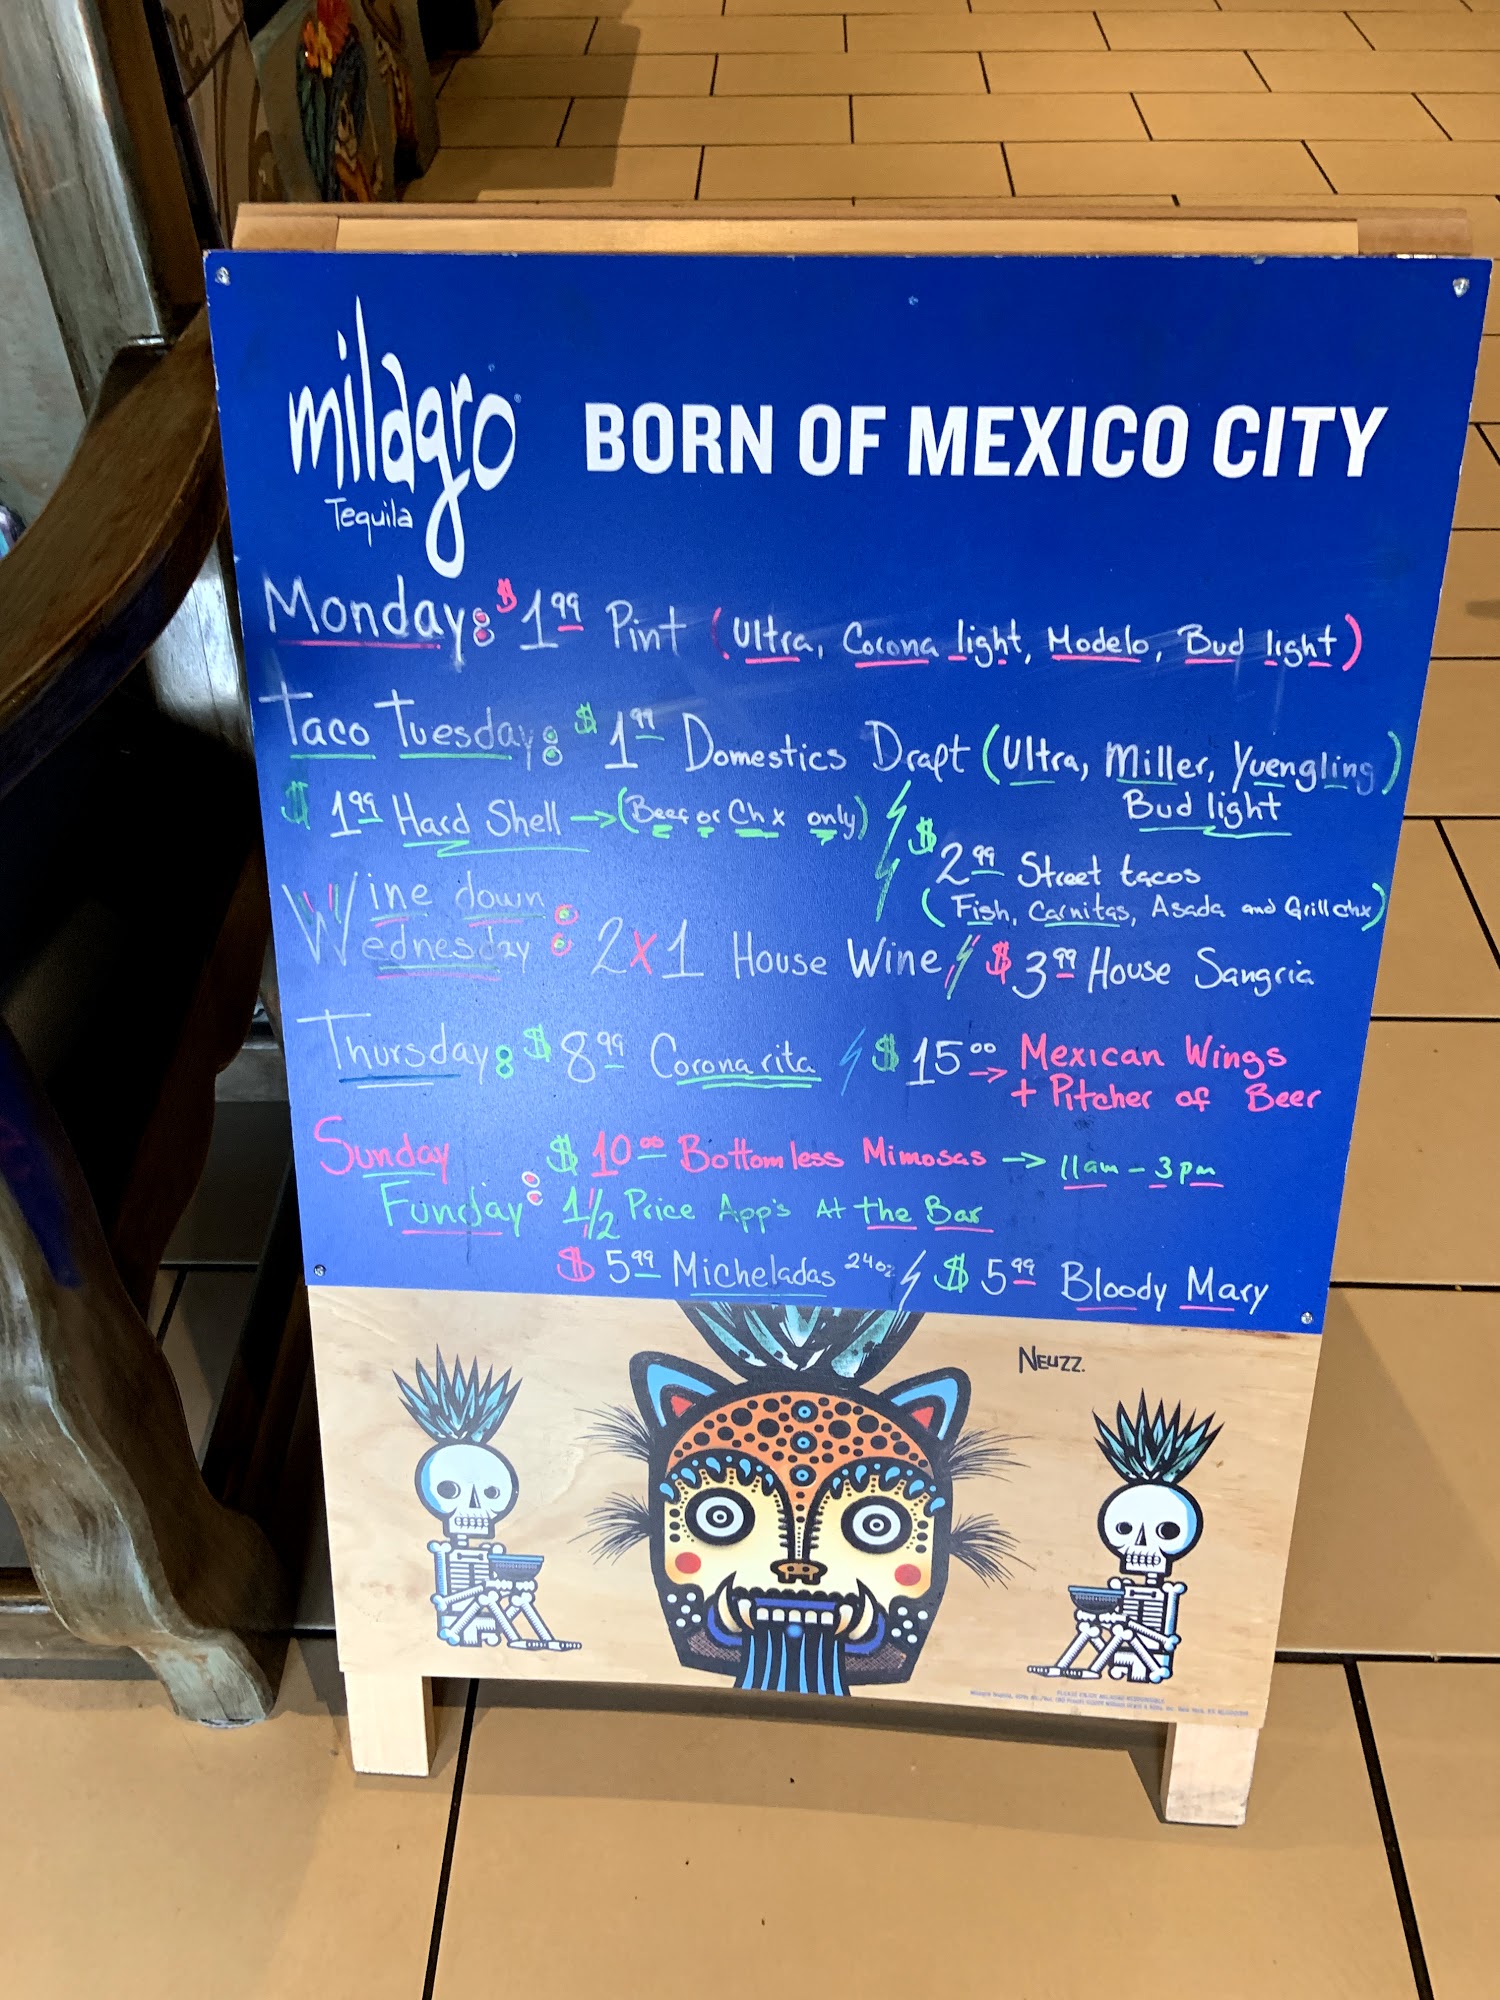 milagro
Tequila
BORN OF MEXICO CITY
Monday: $1.99 Pint (Ultra, Corona light, Modelo, Bud light)
Taco Tuesday: $1.99 Domestics Draft (Ultra, Miller, Yuengling)
Bud light
$1.99 Hard Shell → (Beef or Chx only)
$2.99 Street tacos
(Fish, Carnitas, Asada and Grill chx)
Wine down
Wednesday: 2x1 House Wine $3.99 House Sangria
Thursday: $8.99 Coronarita $15.00 → Mexican Wings
+ Pitcher of Beer
Sunday $10.00 Bottomless Mimosas → 11am - 3pm
Funday: 1/2 Price App's At the Bar
$5.99 Micheladas 24oz $5.99 Bloody Mary
NEUZZ.